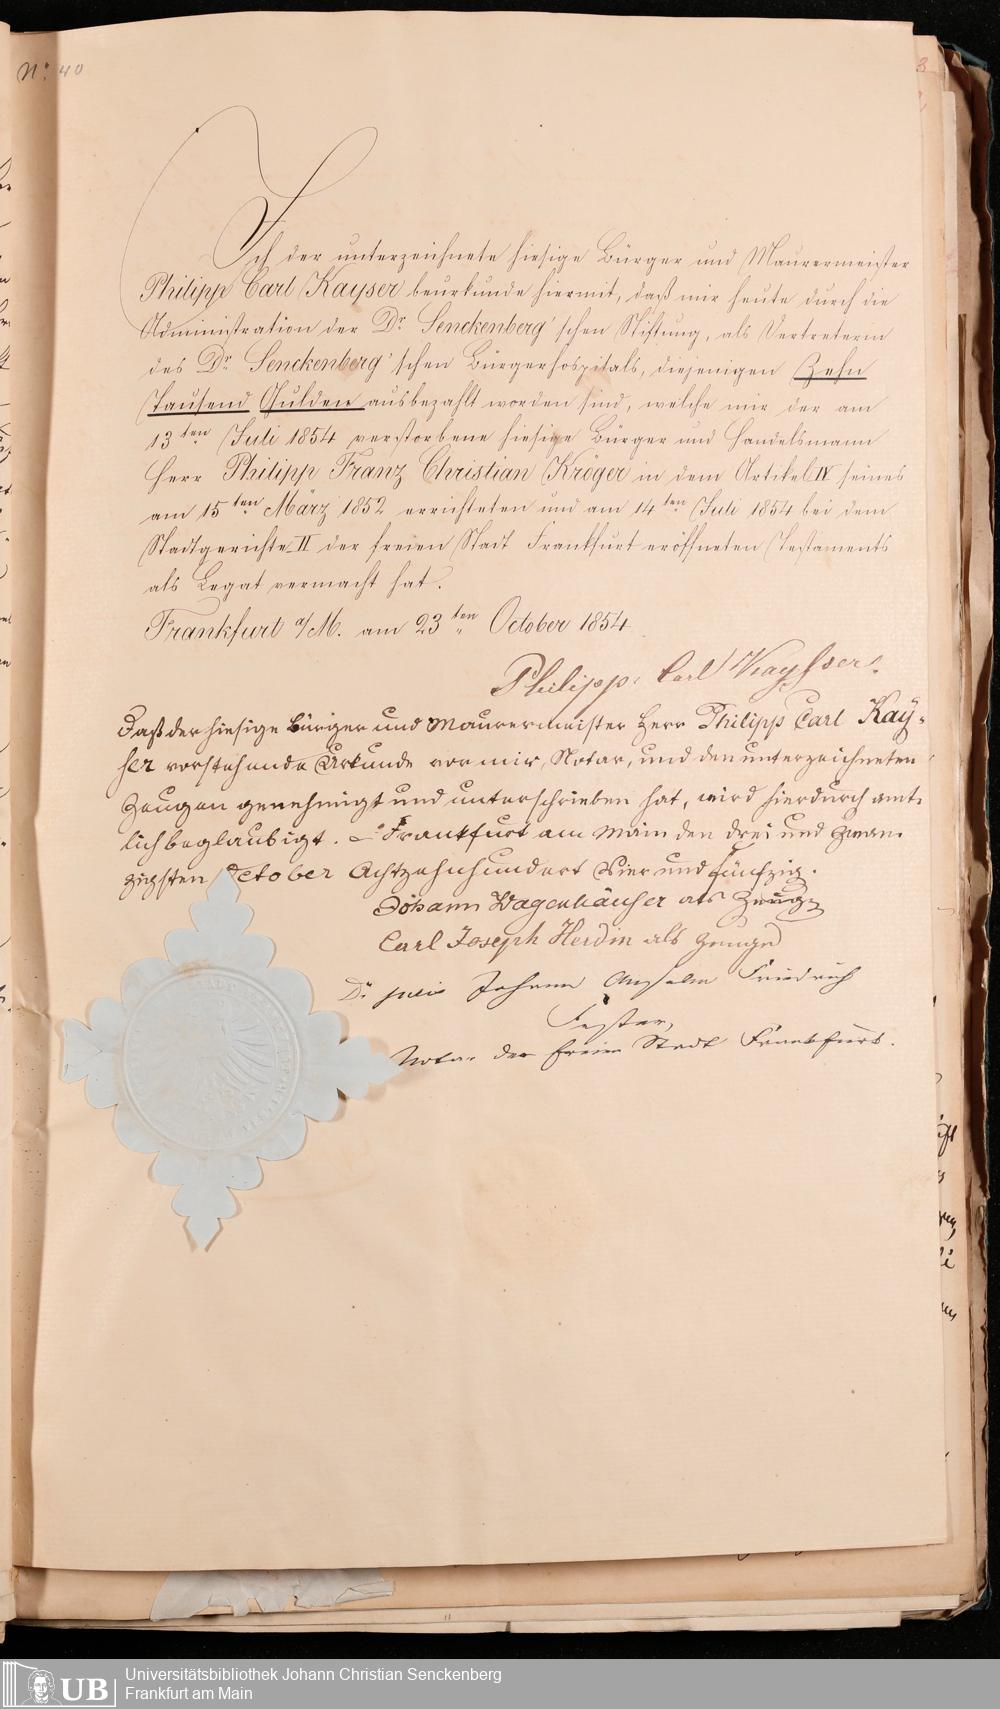 N: 40
Ich der unterzeichnete hiesige Bürger und Maurermeister
Philipp Carl Kayser beurkunde hiermit, daß mir heute durch die
Administration der Dr. Senckenberg'schen Stiftung, als Vertreterin
des Dr. Senckenberg'schen Bürgerhospitals, diejenigen Zehn
Tausend Gulden ausbezahlt worden sind, welche mir der am
13ten Juli 1854 verstorbene hiesige Bürger und Handelsmann
Herr Philipp Franz Christian Kröger in dem Artikel IV seines
am 15ten März 1852 errichteten und am 14ten Juli 1854 bei dem
Stadtgerichte II der freien Stadt Frankfurt eröffneten Testaments
als Legat vermacht hat.
Frankfurt a/M. am 23ten October 1854
Philipp Carl Kaysser.
Daß der hiesige Bürger und Maurermeister Herr Philipp Carl Kay-
ser vorstehende Urkunde vor mir, Notar, und den unterzeichneten
Zeugen genehmigt und unterschrieben hat, wird hierdurch amt-
lich beglaubigt. – Frankfurt am Main den drei und zwan-
zigsten October Achtzehnhundert Vier und fünfzig.
Johann Wagenhäuser als Zeuge
Carl Joseph Herdin als Zeuge
Dr. juris Johann Anselm Friedrich
Fester,
Notar der freien Stadt Frankfurt.
UB
Universitätsbibliothek Johann Christian Senckenberg
Frankfurt am Main